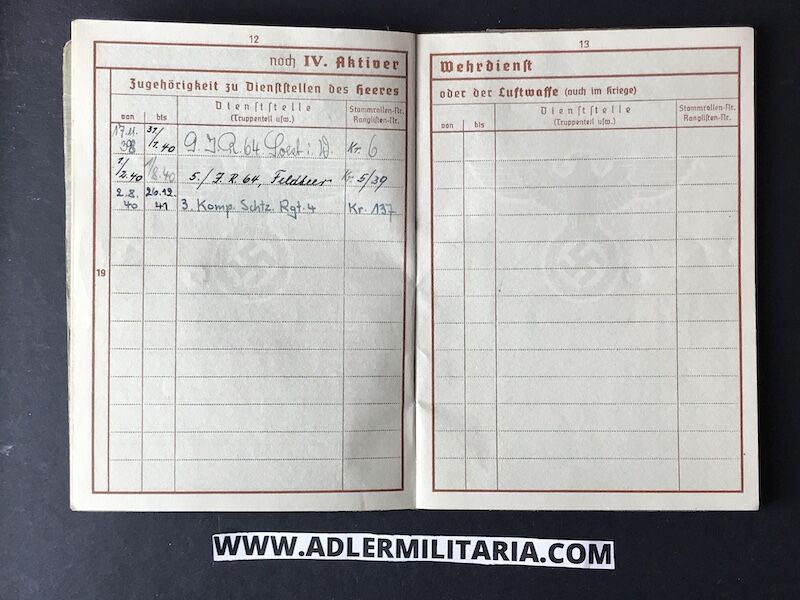 12
noch IV. Aktiver
Zugehörigkeit zu Dienststellen des Heeres
von bis Dienststelle (Truppenteil usw.) Stammrollen-Nr. Ranglisten-Nr.
17.11. 38 31/ 1.40 I.R. 64 Soest i. W Kr. 6
1/ 2.40 1/8.40 5./ I.R. 64, Feldheer Kr. 5/39
2.8. 40 26.12. 41 3. Komp. Schtz. Rgt. 4 Kr. 137
19
13
Wehrdienst
oder der Luftwaffe (auch im Kriege)
von bis Dienststelle (Truppenteil usw.) Stammrollen-Nr. Ranglisten-Nr.
WWW.ADLERMILITARIA.COM